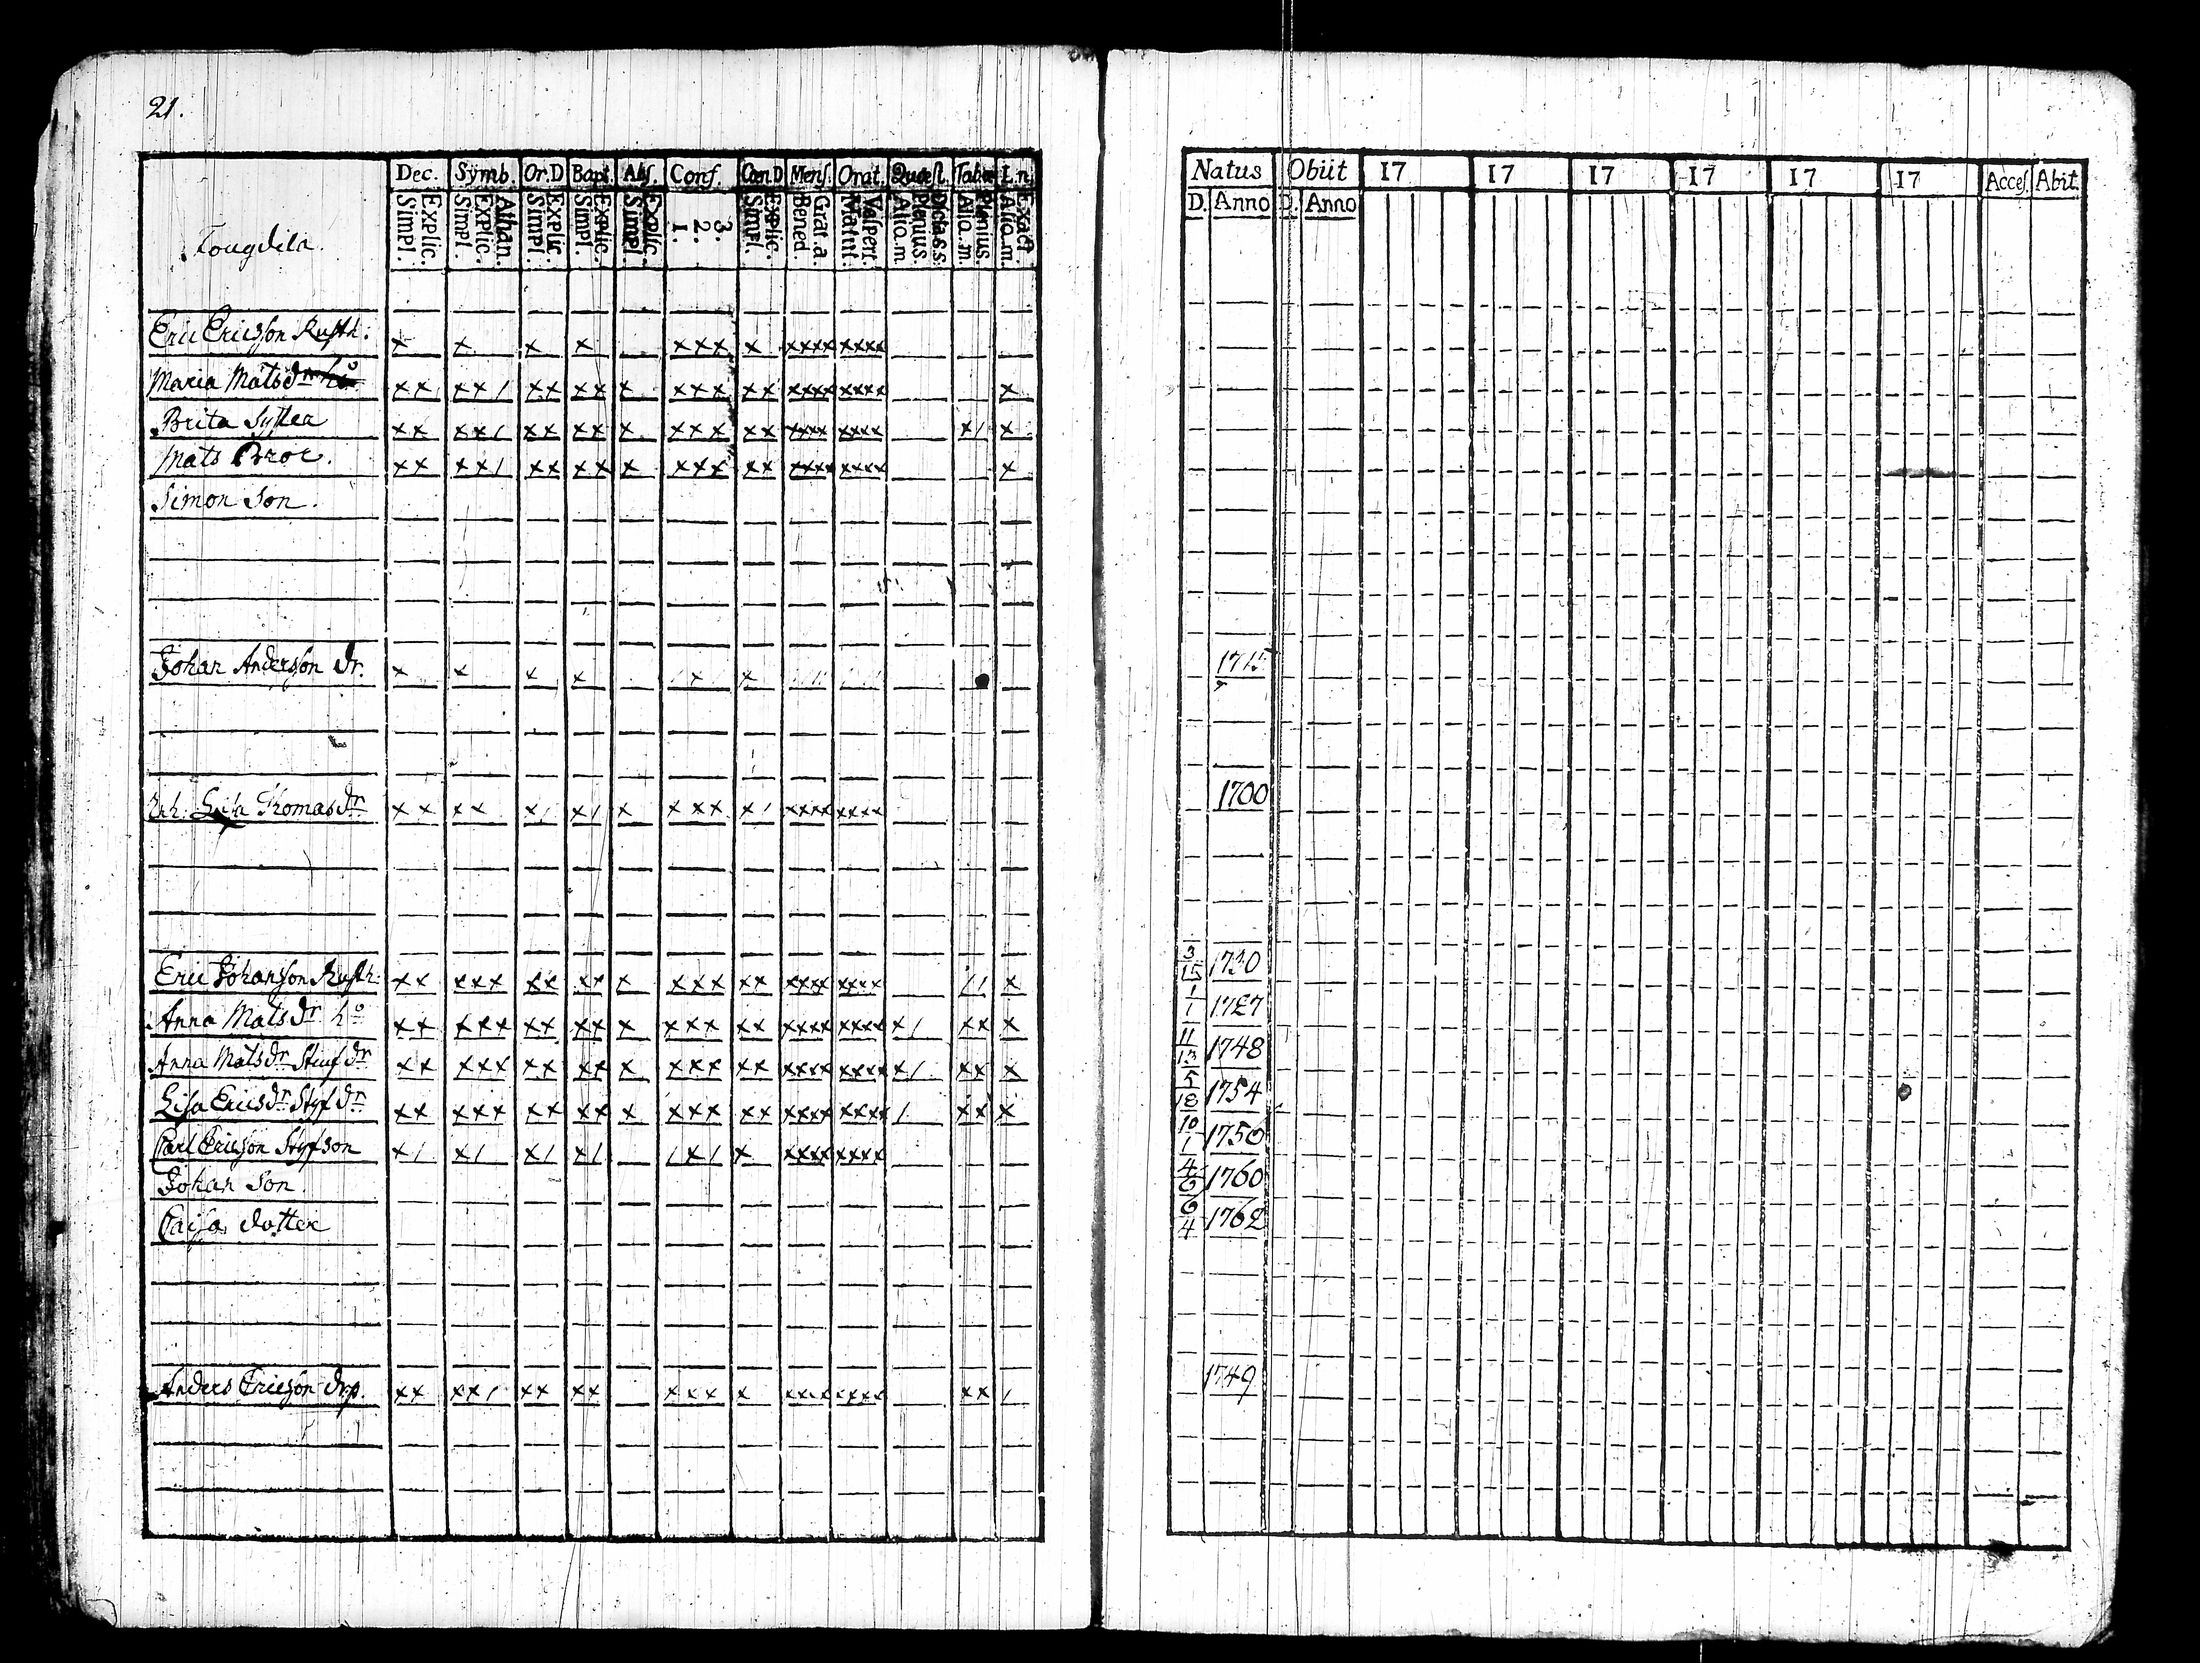 21.
Dec. Symb. Or.D Bapt. Abs. Conf. Cœn.D Mens. Orat. Quæst. Tabæ I.n.
Natus Obiit 17 17 17 17 17 17 Acces. Abit.
Explic. Simpl. Athan. Explic. Simpl. Explic. Simpl. Explic. Simpl. Explic. Simpl. 3. 2. 1. Explic. Simpl. Grat.a. Bened. Vespert. Matut. Dicta s.s. Plenius. Alio.m. Plenius. Alio.m. Exact. Alio.m.
D. Anno D. Anno
Tougdila.
Eric Ericsson Rusth. x x x x xxx x xxxx xxxx
Maria Matsdr ho xx xx/ xx xx x xxx xx xxxx xxxx x
Brita Syster xx xx/ xx xx x xxx xx xxxx xxxx x/ x
Mats Bror. xx xx/ xx xx x xxx xx xxxx xxxx x
Simon Son.
Johan Andersson dr. x x x x /x/ x 1715
Enk. Lisa Thomasdr xx xx x/ x/ x xxx x/ xxxx xxxx 1700
Eric Johansson Rusth. xx xxx xx xx x xxx xx xxxx xxxx // x 3/15 1730
Anna Matsdr ho xx xxx xx xx x xxx xx xxxx xxxx x/ xx x 1/1 1727
Anna Matsdr Stiufdr xx xxx xx xx x xxx xx xxxx xxxx x/ xx x 11/13 1748
Lisa Ericsdr Styfdr xx xxx xx xx x xxx xx xxxx xxxx / xx x 5/18 1754
Carl Ericsson Styfson x/ x/ x/ x/ /x/ x xxxx xxxx 10/1 1750
Johan Son. 4/6 1760
Caisa dotter 6/4 1762
Anders Ericsson drp. xx xx/ xx xx xxx x xxxx xxxx xx / 1749